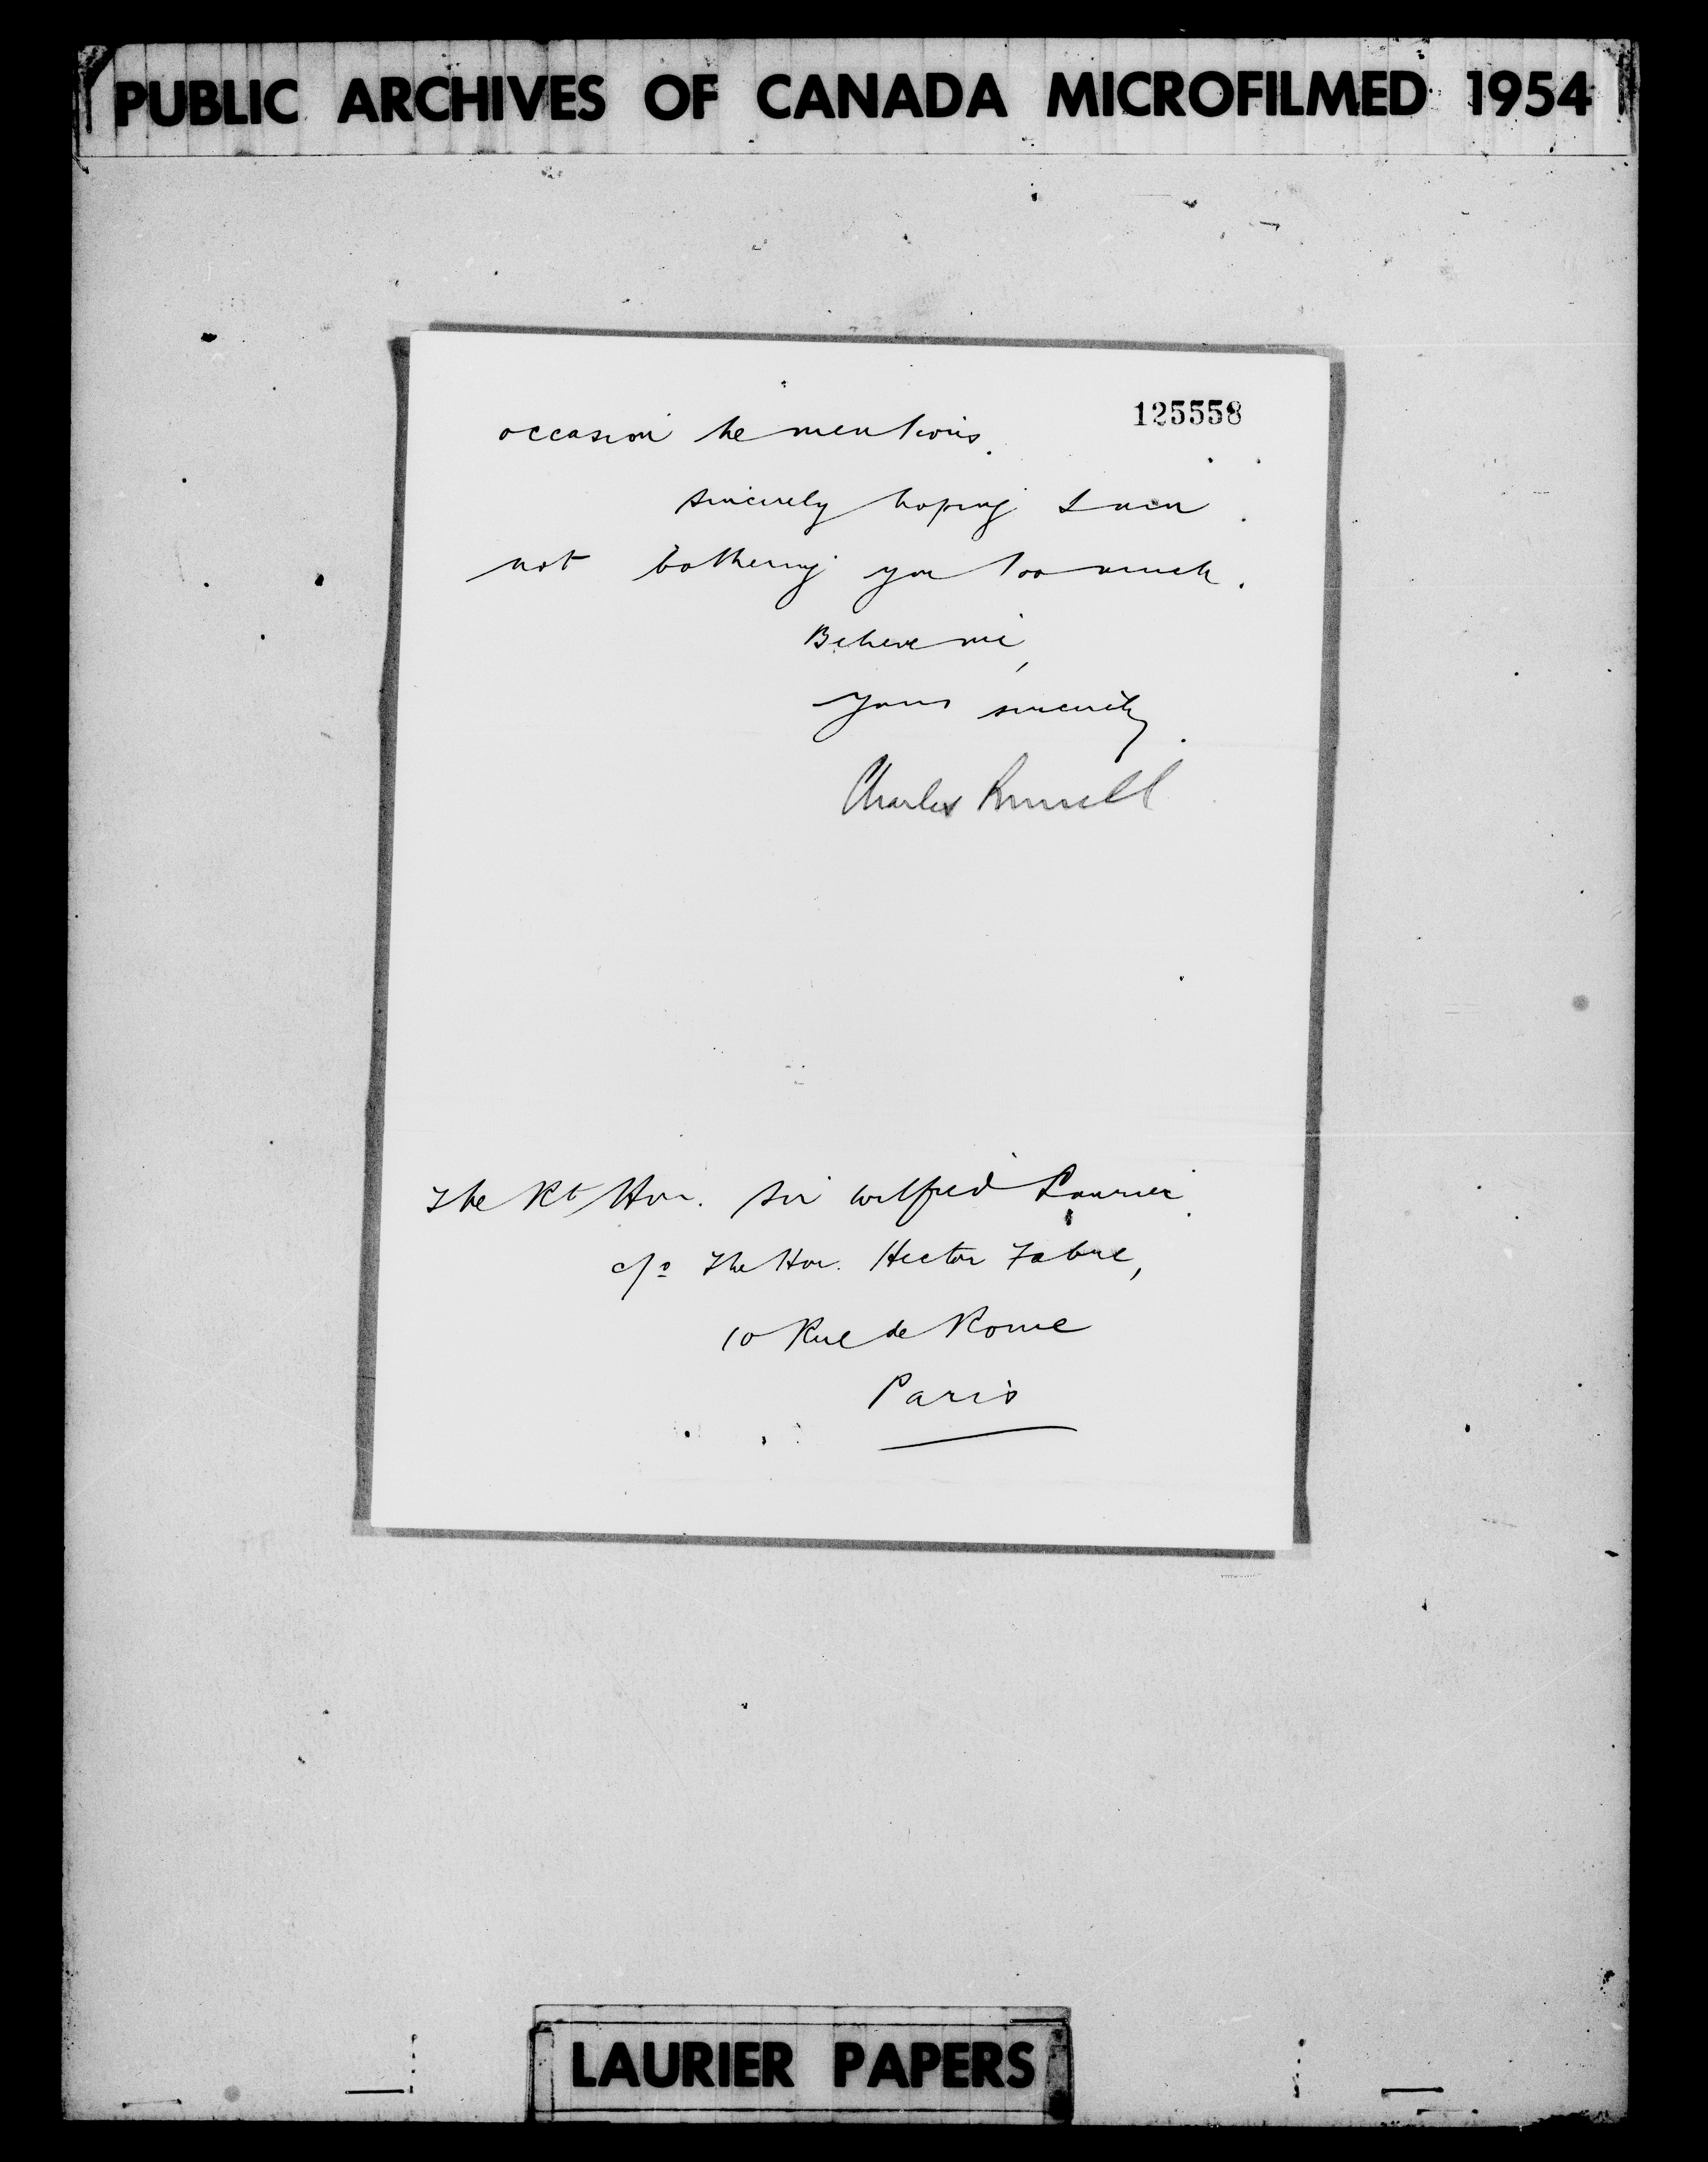 PUBLIC ARCHIVES OF CANADA MICROFILMED 1954
125558
occasion he mentions.
Sincerely hoping I am
not bothering you too much.
Believe me,
Yours sincerely
Charles Russell
The Rt Hon. Sir Wilfred Laurier
c/o The Hon. Hector Fabre,
10 Rue de Rome
Paris
LAURIER PAPERS